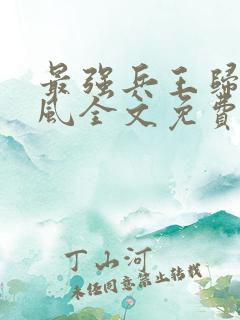 最强兵王归
风全文免费
丁山河
未经同意禁止转载